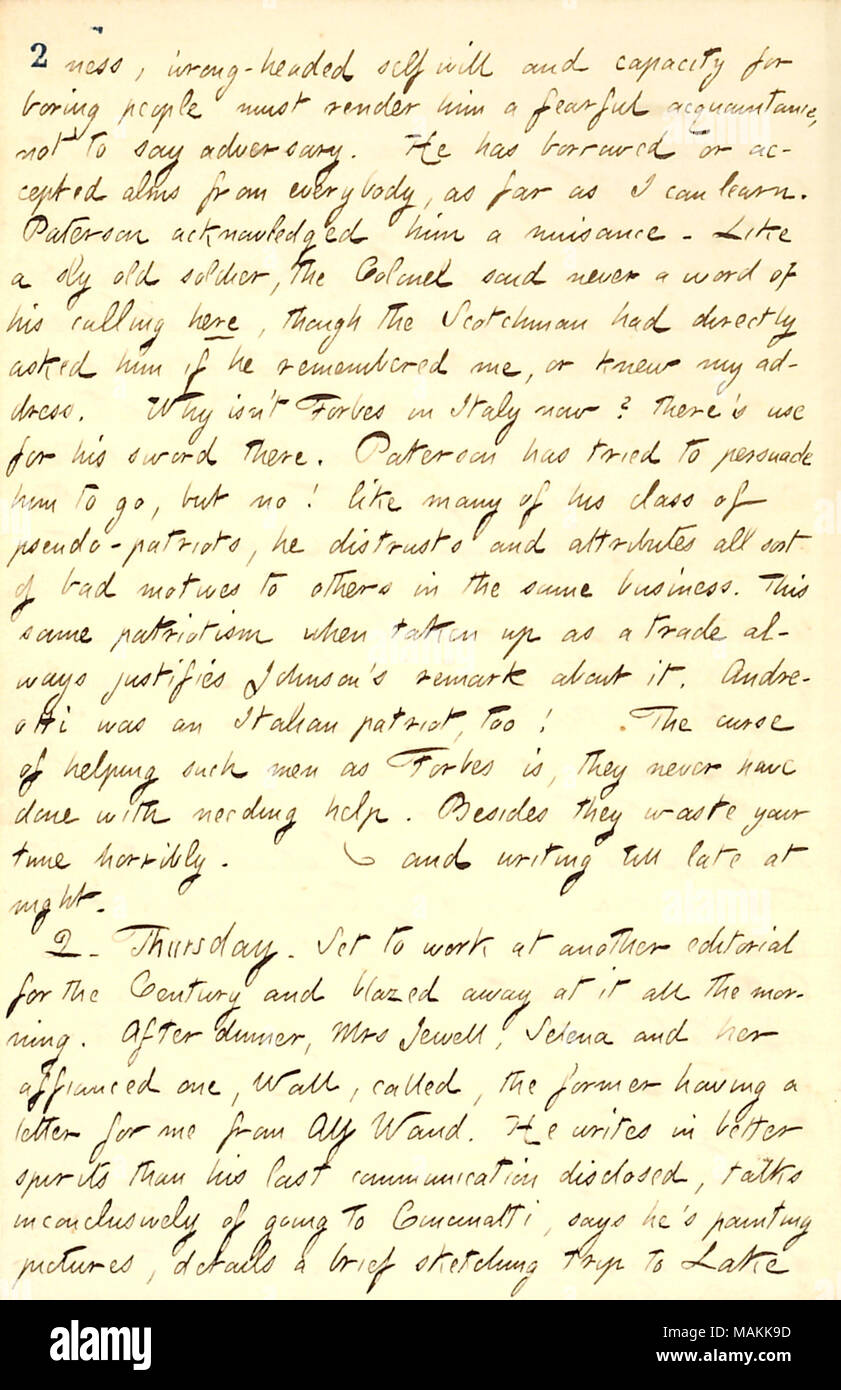 2 ness, wrong-headed self will and capacity for
boring people must render him a fearful acquaintance,
not to say adversary. He has borrowed or ac-
cepted alms from everybody, as far as I can learn.
Paterson acknowledged him a nuisance. Like
a sly old soldier, the Colonel said never a word of
his calling here, though the Scotchman had directly
asked him if he remembered me, or knew my ad-
dress. Why isn't Forbes in Italy now? there's use
for his sword there. Paterson has tried to persuade
him to go, but no! like many of his class of
pseudo-patriots, he distrusts and attributes all sort
of bad motives to others in the same business. This
same patriotism when taken up as a trade al-
ways justifies Johnson's remark about it. Andre-
otti was an Italian patriot, too! The curse
of helping such men as Forbes is, they never have
done with needing help. Besides they waste your
time horribly. and writing till late at
night.
2. Thursday. Set to work at another editorial
for the Century and blazed away at it all the mor-
ning. After dinner, Mrs Jewell, Selena and her
affianced one, Wall, called, the former having a
letter for me from Alf Waud. He writes in better
spirits than his last communication disclosed, talks
inconclusively of going to Cincinatti, says he's painting
pictures, details a brief sketching trip to Lake
alamy
Image ID: MAKK9D
www.alamy.com